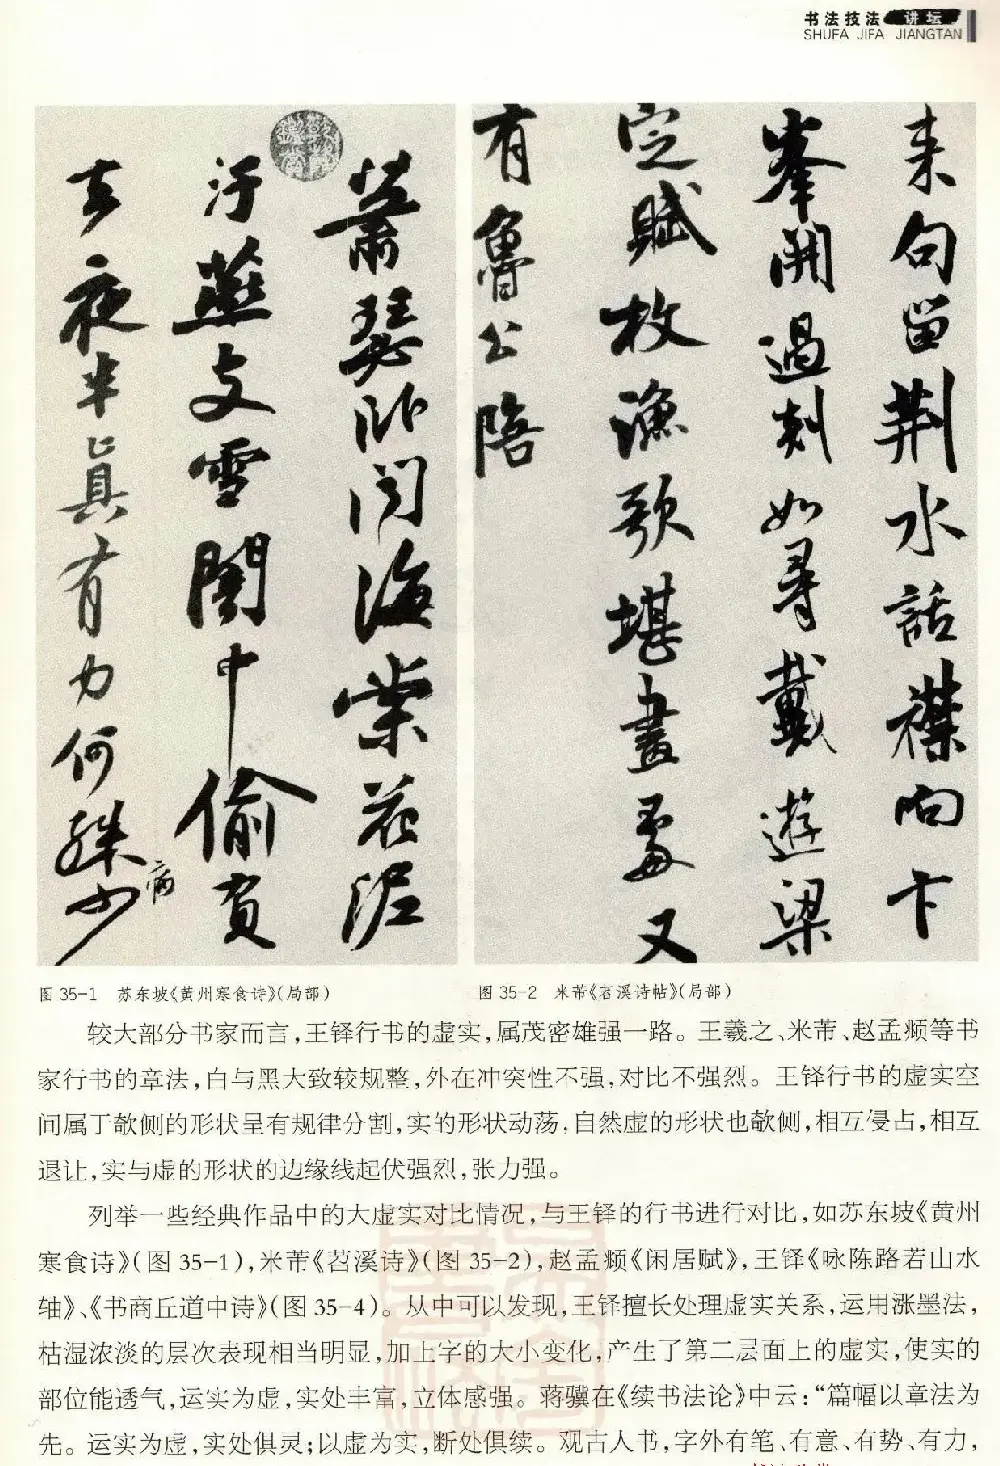 书法技法 讲坛
SHUFA JIFA JIANGTAN
萧瑟卧闻海棠花泥
汙燕支雪闇中偷负
去夜半真有力何殊少
病
来句留荆水话襟向卞
峰开过剡如寻戴游梁
定赋枚渔歌堪画处又
有鲁公陪
图 35-1 苏东坡《黄州寒食诗》(局部)
图 35-2 米芾《苕溪诗帖》(局部)
较大部分书家而言,王铎行书的虚实,属茂密雄强一路。王羲之、米芾、赵孟頫等书
家行书的章法,白与黑大致较规整,外在冲突性不强,对比不强烈。王铎行书的虚实空
间属于欹侧的形状呈有规律分割,实的形状动荡,自然虚的形状也欹侧,相互侵占,相互
退让,实与虚的形状的边缘线起伏强烈,张力强。
列举一些经典作品中的大虚实对比情况,与王铎的行书进行对比,如苏东坡《黄州
寒食诗》(图 35-1),米芾《苕溪诗》(图 35-2),赵孟頫《闲居赋》,王铎《咏陈路若山水
轴》、《书商丘道中诗》(图 35-4)。从中可以发现,王铎擅长处理虚实关系,运用涨墨法,
枯湿浓淡的层次表现相当明显,加上字的大小变化,产生了第二层面上的虚实,使实的
部位能透气,运实为虚,实处丰富,立体感强。蒋骥在《续书法论》中云:“篇幅以章法为
先。运实为虚,实处俱灵;以虚为实,断处俱续。观古人书,字外有笔、有意、有势、有力,